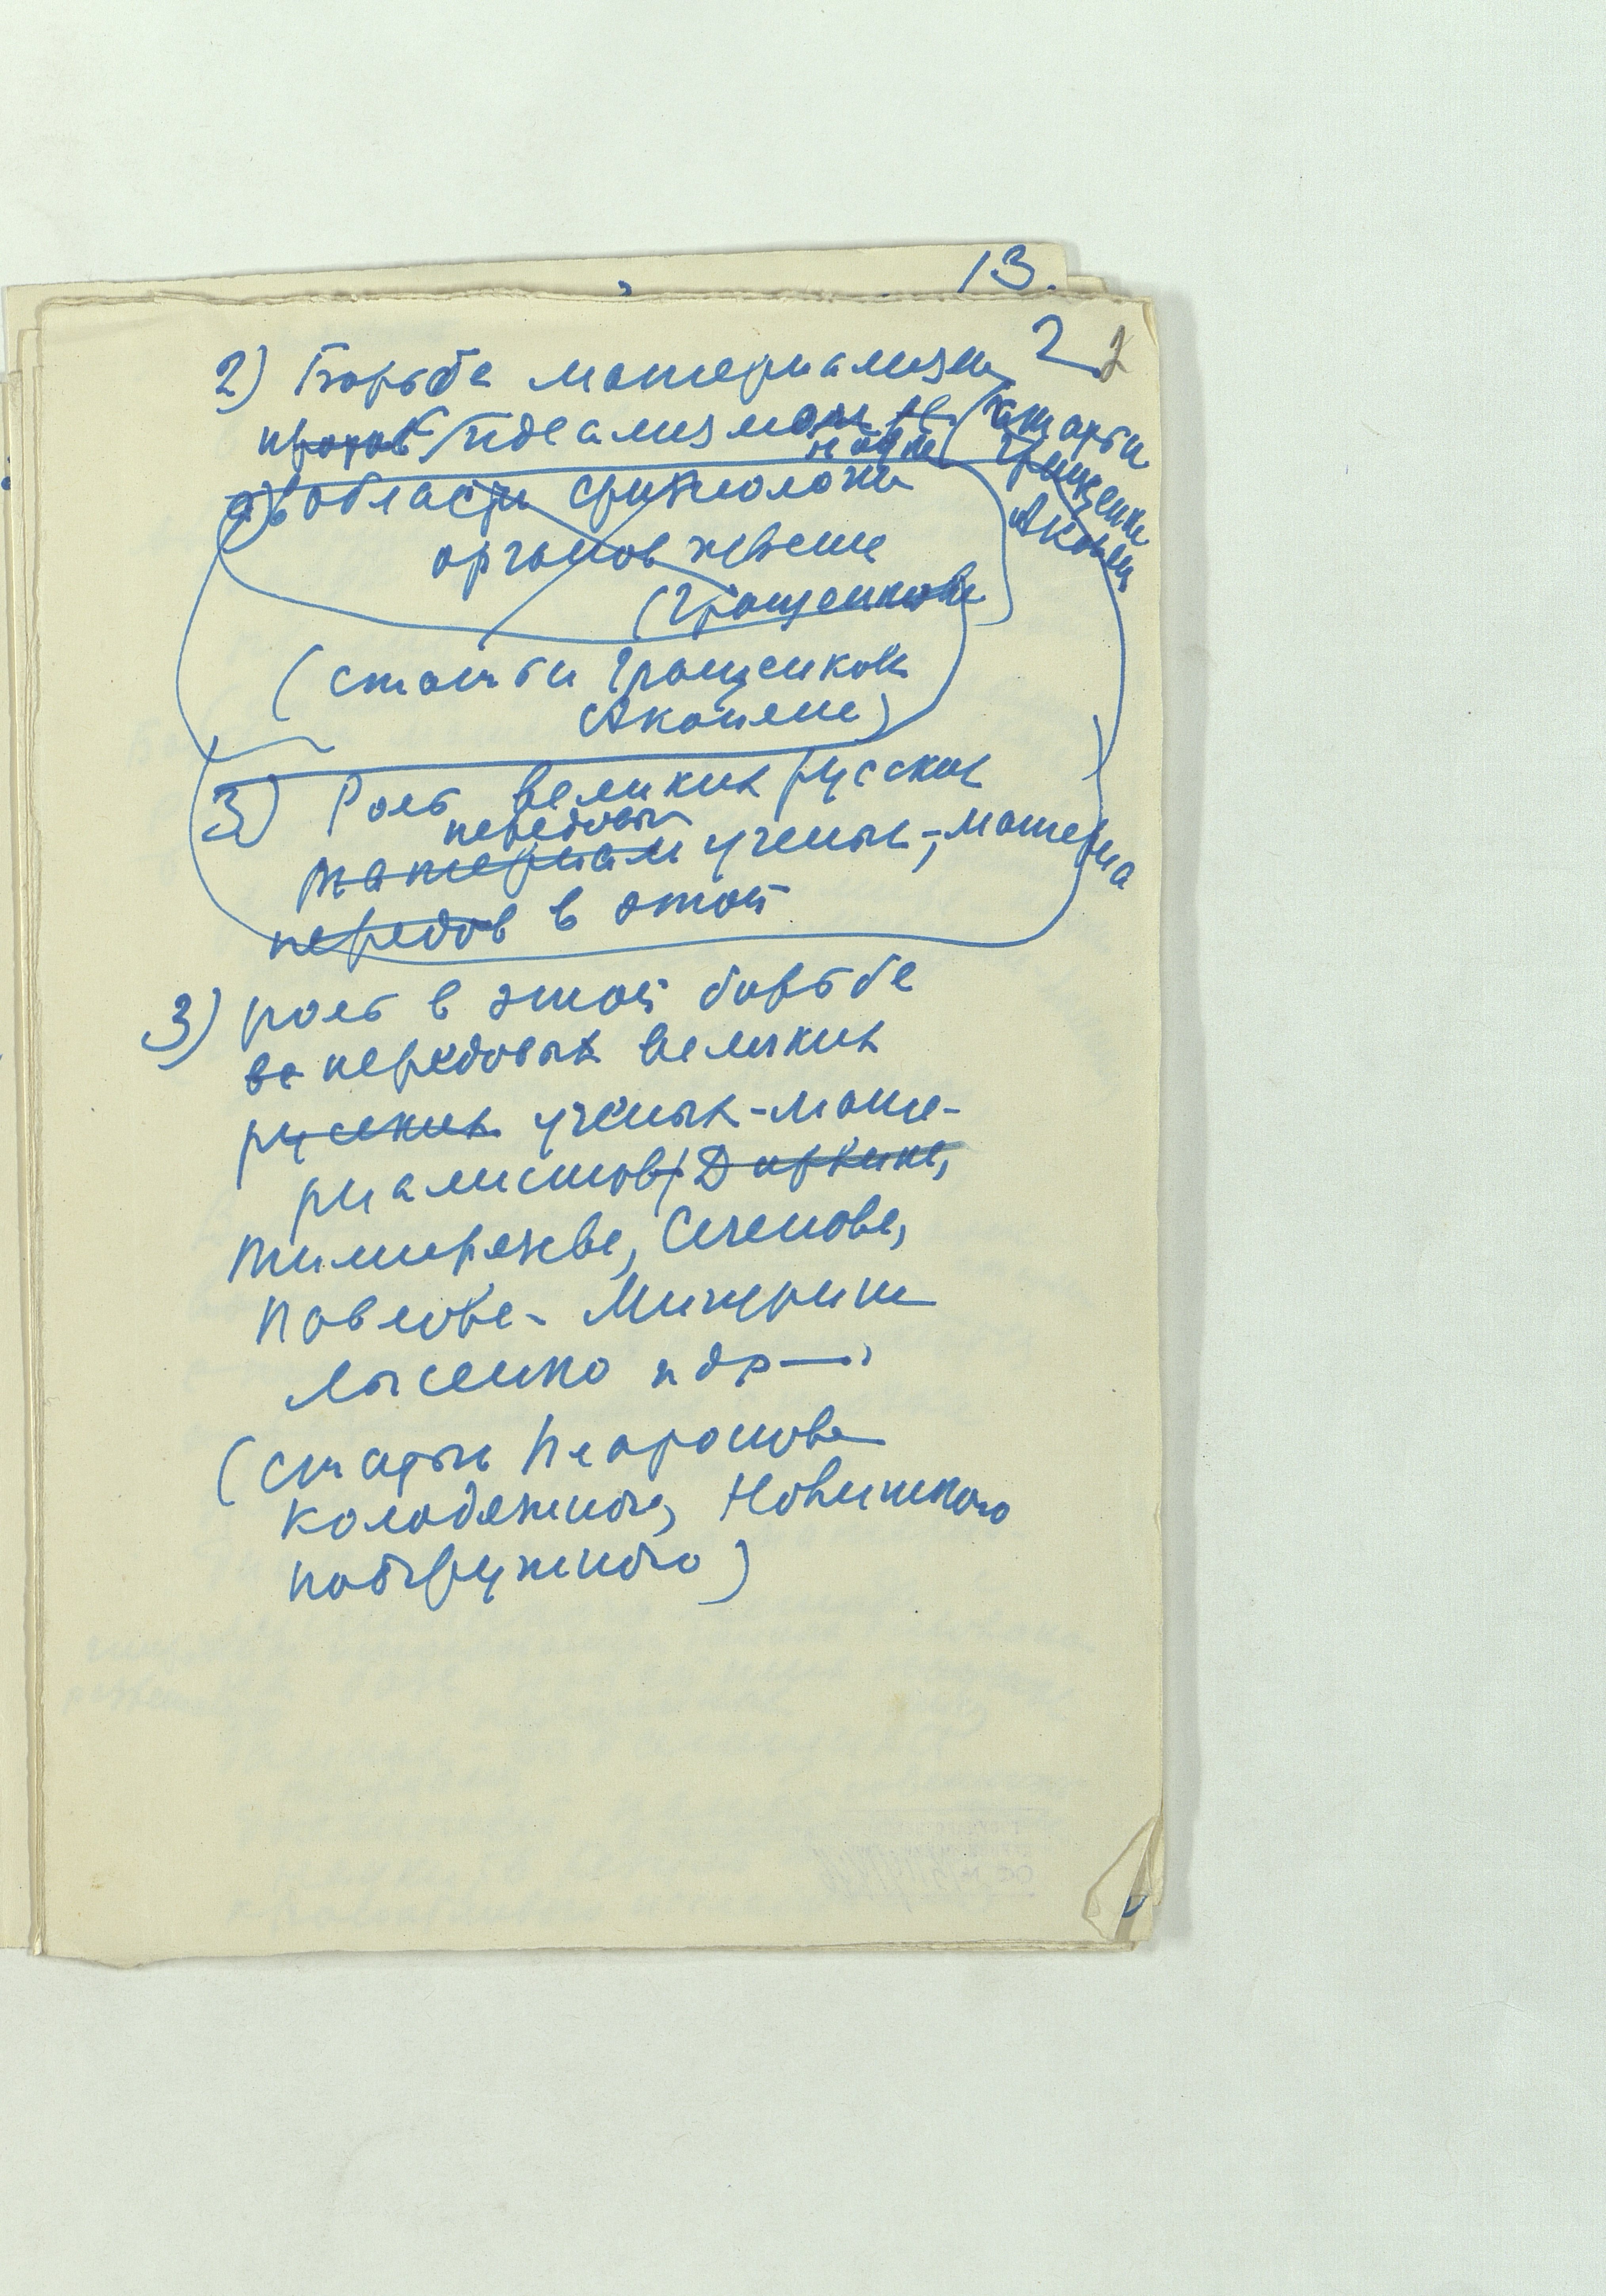 13.
2
2
2) Борьба материализм
против идеализмом
науке
(статьи
Гращенков
Акопян
а) в области физиологии
органов чувств
(Гращенкова
(статьи Гращенкова
Акопяна)
3) Роль великих русских
передовых
материал ученых-материа
передов в этой
3) роль в этой борьбе
ве передовых великих
русских учёных-мате-
риалистов (Дарвина,
Тимирязева, Сеченова,
Павлова - Мичурин
Лысенко и др—.
(статьи
Колодяжного, Новинского
)